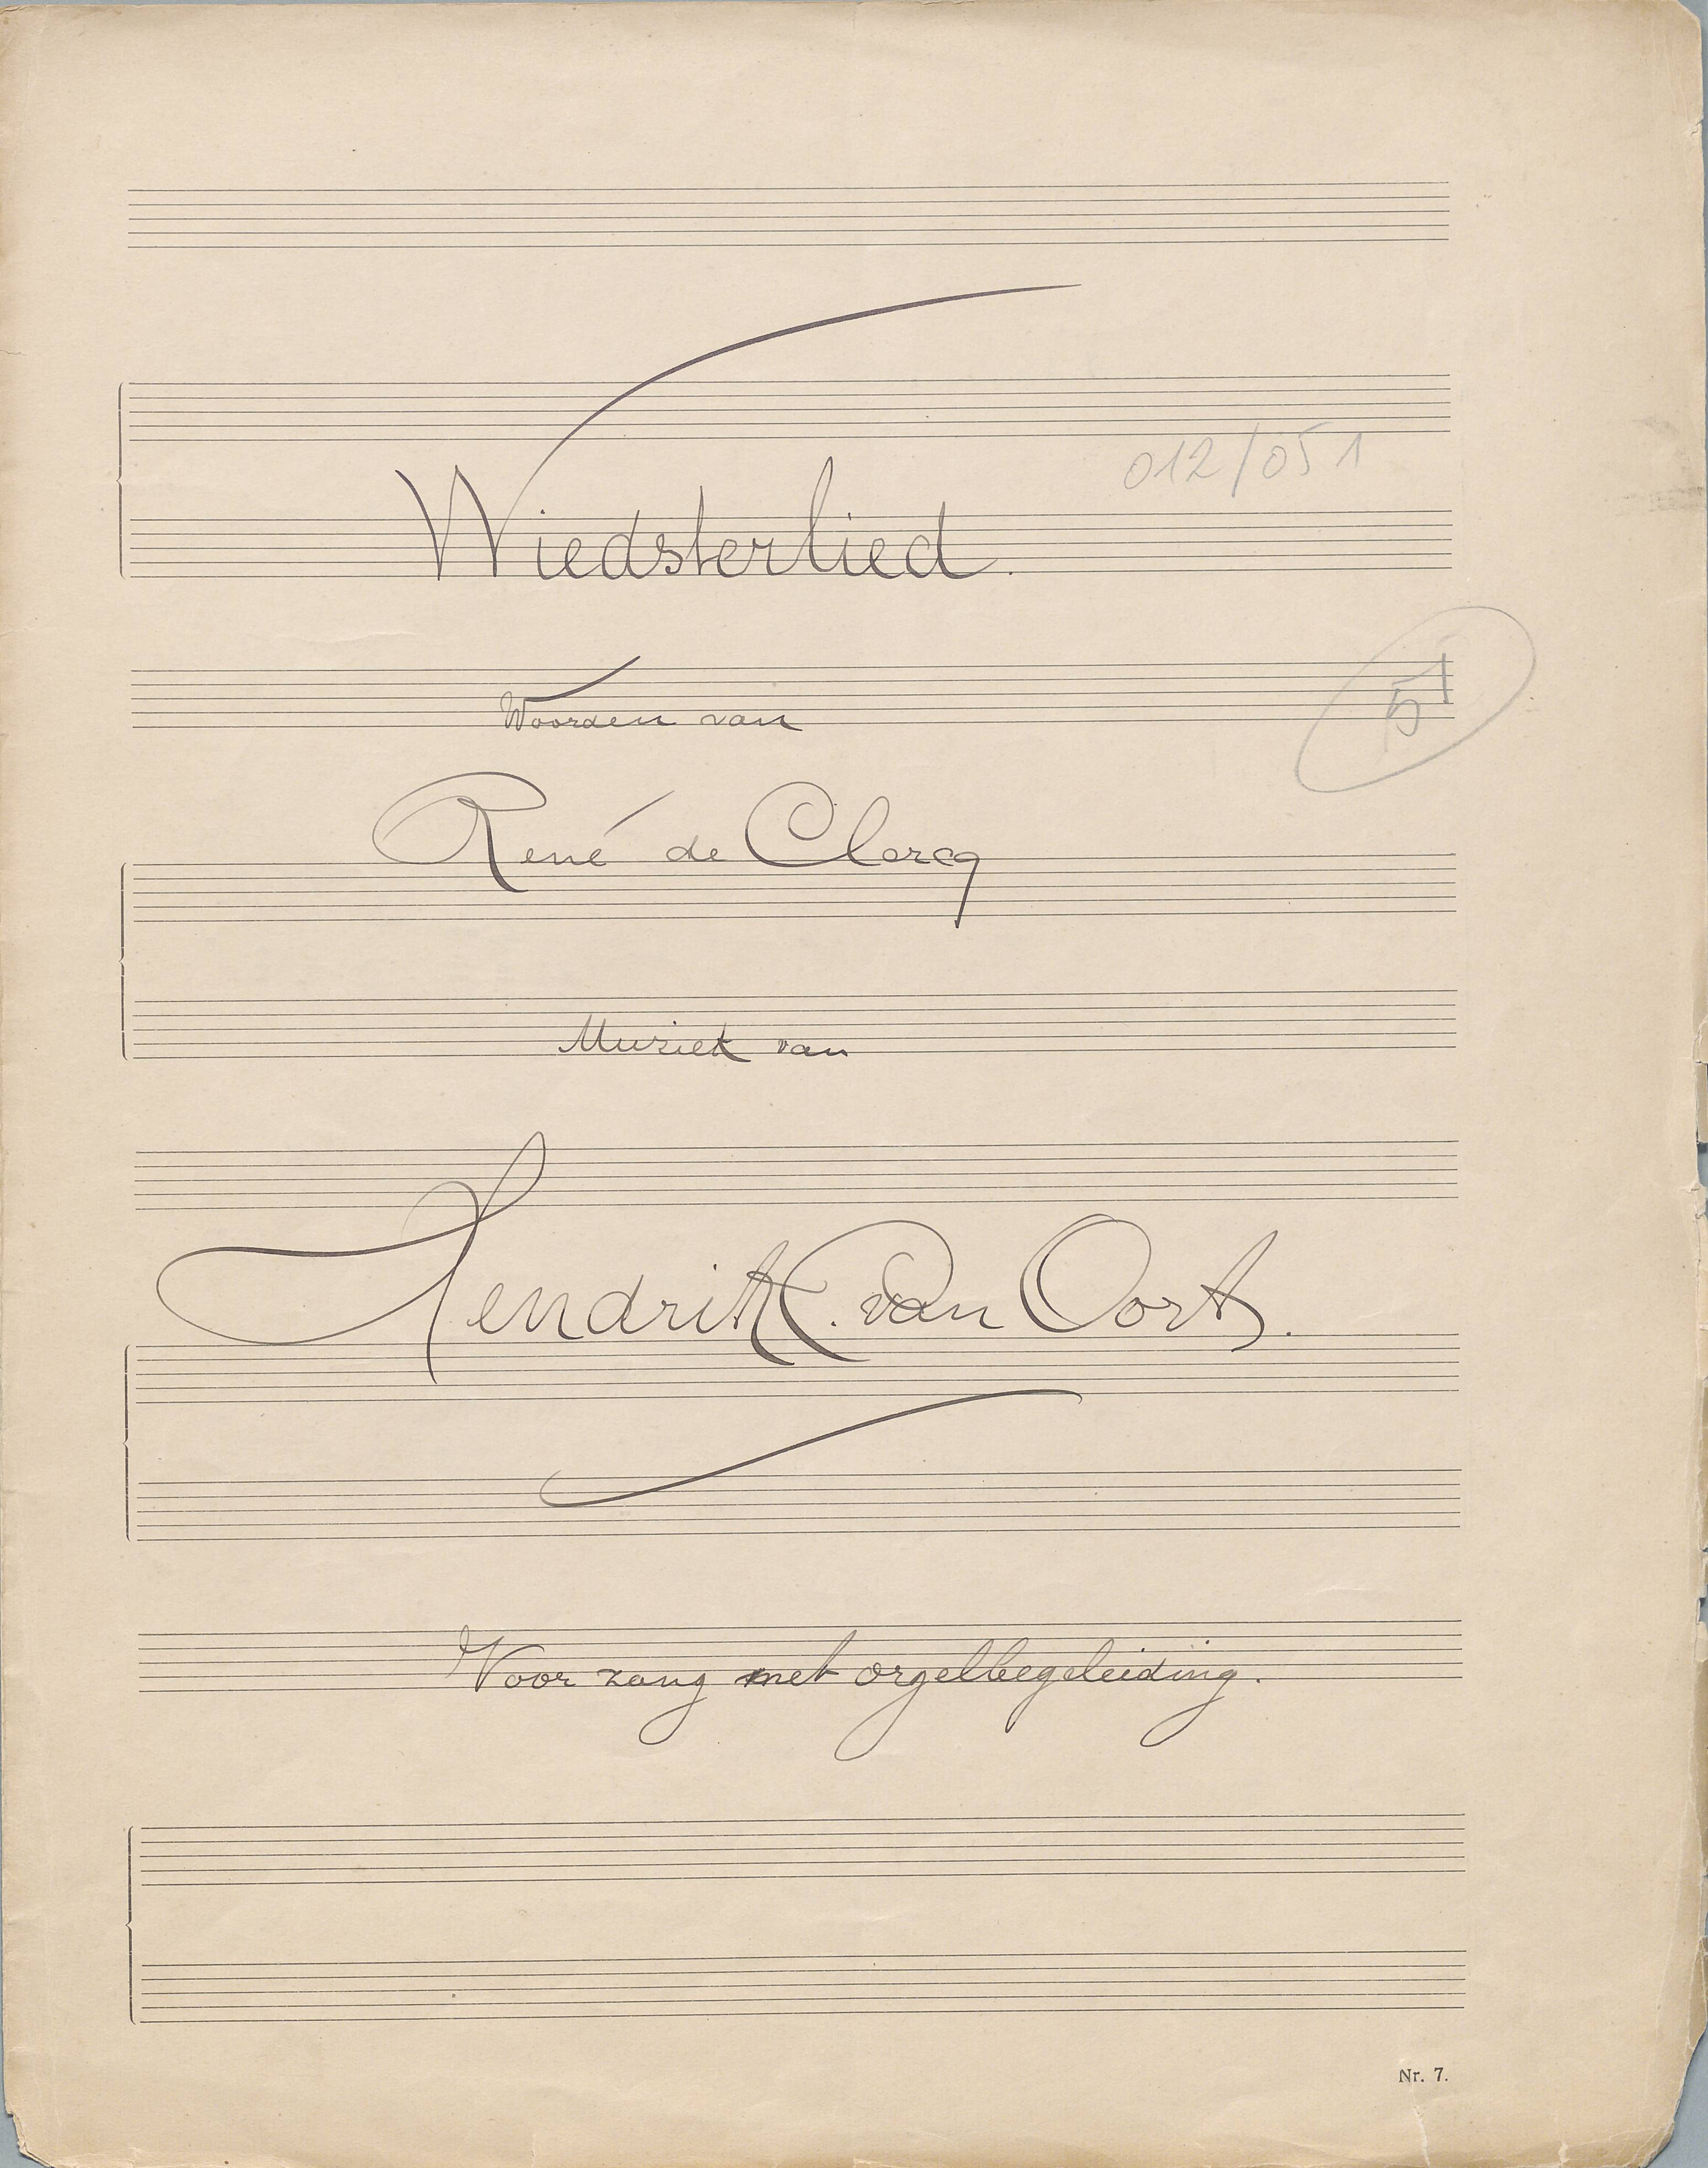 012/051
Wiedsterlied.
51
Woorden van
René de Clercq
Muziek van
Hendrik C. van Oort.
Voor zang met orgelbegeleiding.
Nr. 7.